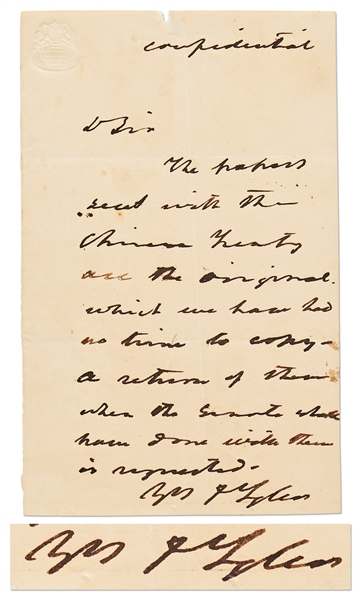 confidential
D Sir
The papers
sent with the
Chinese Treaty
are the original.
which we have had
no time to copy-
a return of them
when the Senate shall
have done with them
is requested.
Yrs J Tyler
Yrs J Tyler